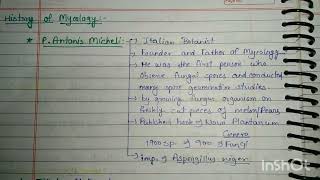 History of Mycology:-
* P. Antonio Micheli:- → Italian Botanist
→ Founder and Father of Mycology
→ He was the first person who
observe fungal spores and conducted
many spore germination studies.
→ by growing fungus organism on
freshly cut pieces of melon/Pears.
→ Published book of Nova Plantarum
Genera
1900 sp. of 900 of Fungi
→ imp. of Aspergillus niger.
InShot